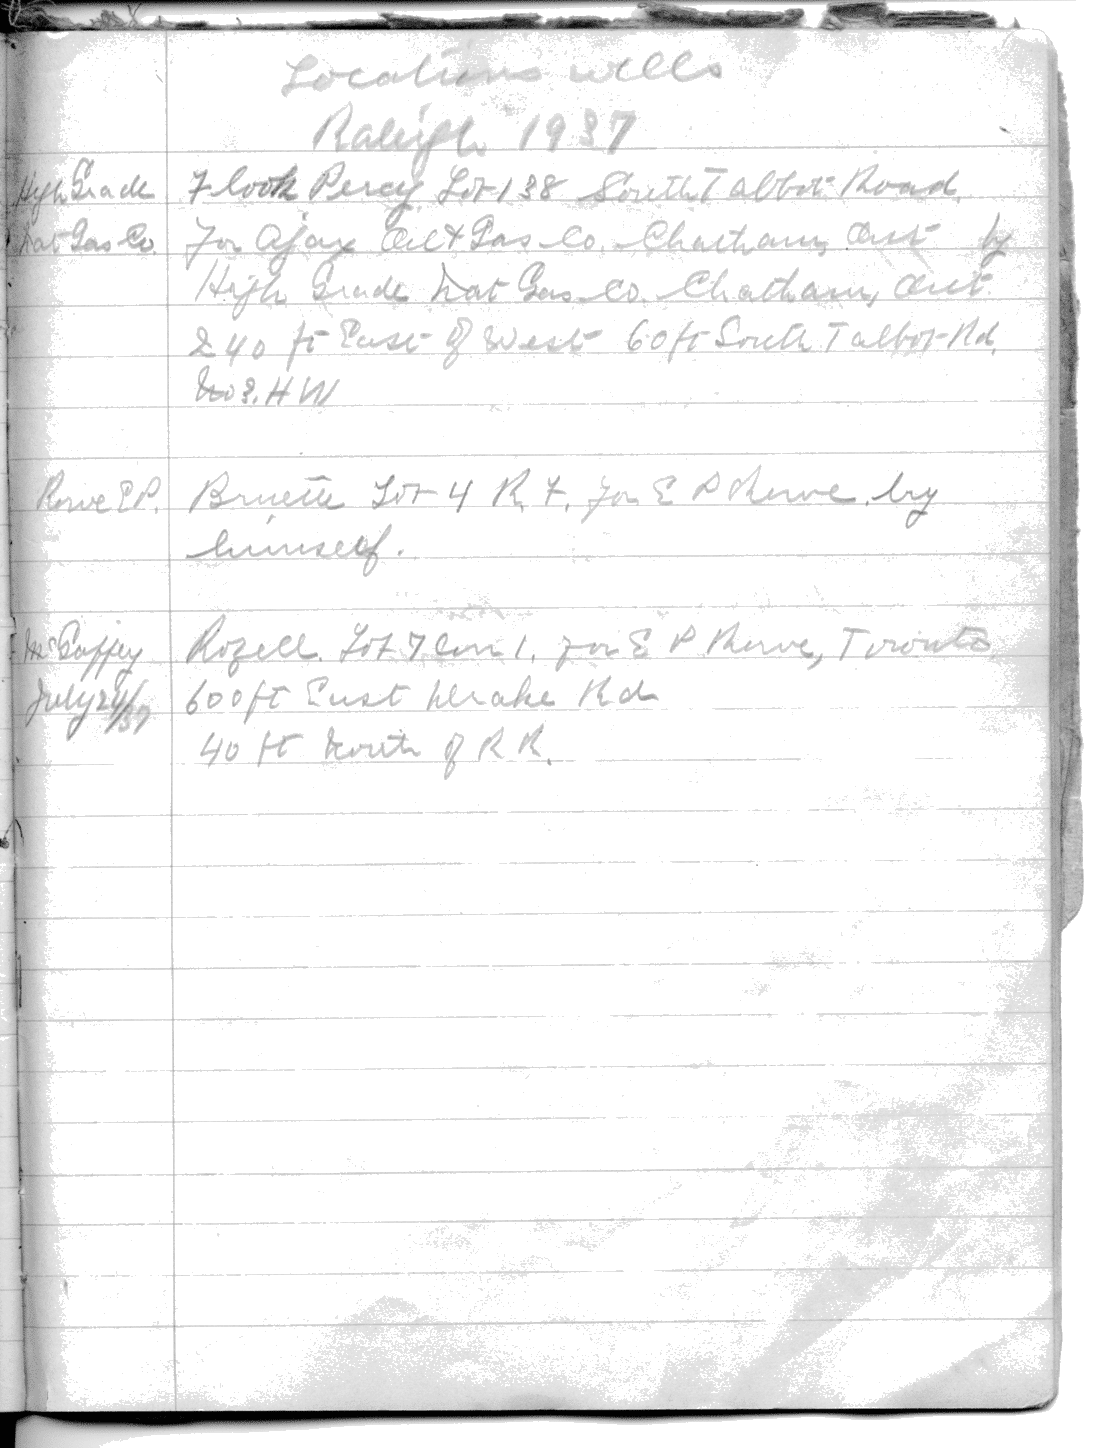 Locations wells
Raleigh 1937
High Grade Flook Percy Lot 138 South Talbot Road.
Nat Gas Co. For Ajax Oil & Gas Co. Chatham, Ont by
High Grade Nat Gas Co. Chatham, Ont
240 ft East of West 60 ft South Talbot Rd.
No 3. H W
Rowe E P. Bruette Lot 4 R. 7. for E P Rowe by
himself.
McGaffey Rozell. Lot 7 Con 1. for E P Rowe, Toronto
July 24/37 600 ft East Drake Rd
40 ft North of R R.